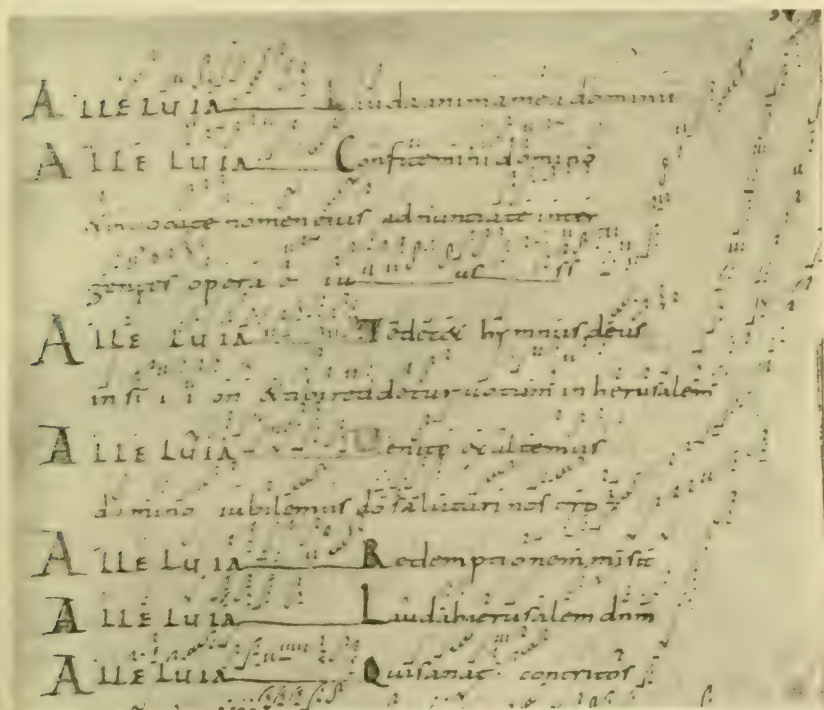 ALLELUIA Lauda anima mea dominū
ALLELUIA Confitemini domino
& inuocate nomen eius adnunciate inter
gentes opera e iu us
ALLELUIA Te dec& hymnus deus
in si i i on & tibi reddetur uotum in herusalem
ALLELUIA Uenite exultemus
domino iubilemus dō salutari nostro
ALLELUIA Redemptionem misit
ALLELUIA Lauda hierusalem dn̄m
ALLELUIA Qui sanat contritos